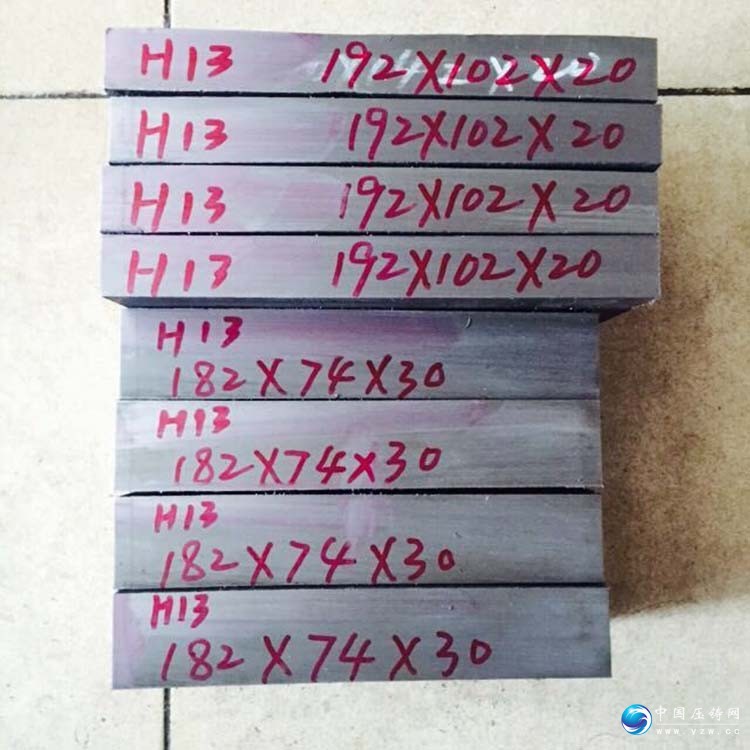 H13 192X102X20
H13 192X102X20
H13 192X102X20
H13 192X102X20
H13
182X74X30
H13
182X74X30
H13
182X74X30
H13
182X74X30
中国压铸网
www.yzw.cc